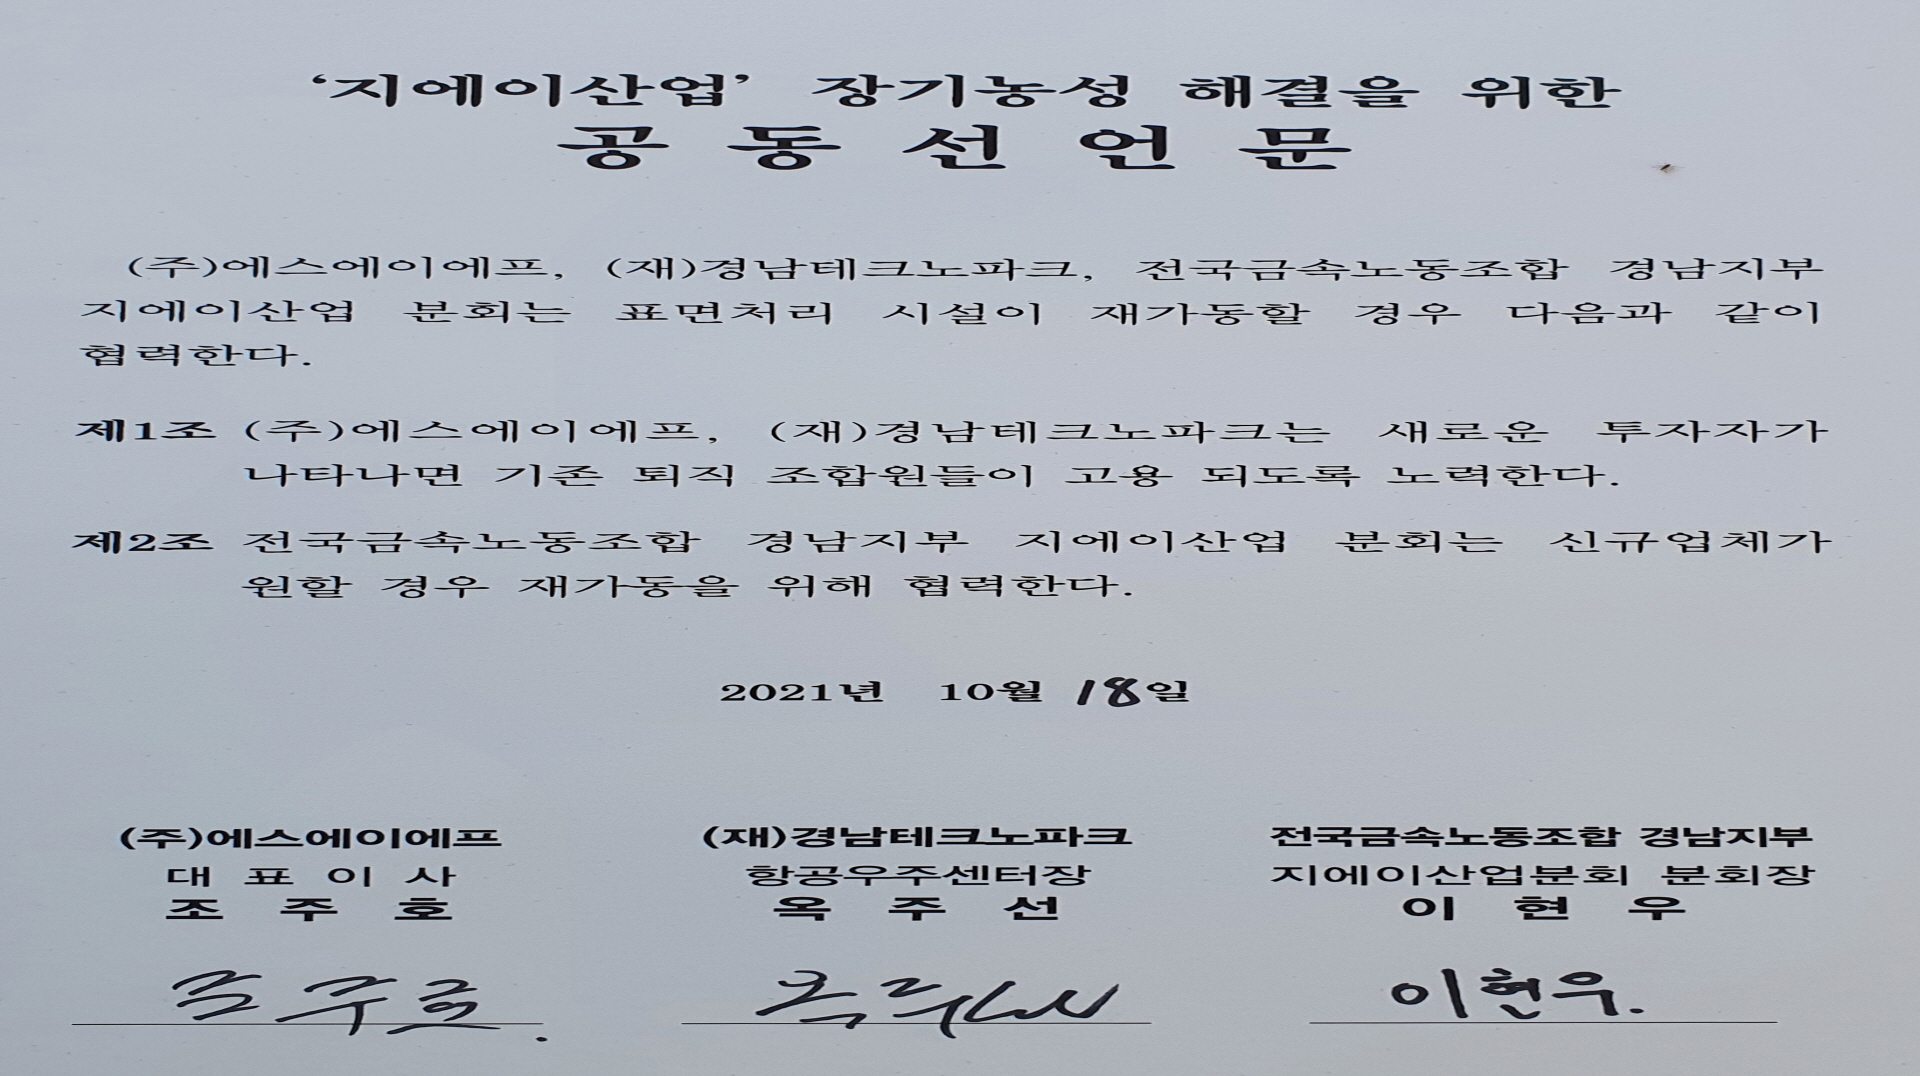 ‘지에이산업’ 장기농성 해결을 위한
공 동 선 언 문
(주)에스에이에프, (재)경남테크노파크, 전국금속노동조합 경남지부
지에이산업 분회는 표면처리 시설이 재가동할 경우 다음과 같이
협력한다.
제1조 (주)에스에이에프, (재)경남테크노파크는 새로운 투자자가
나타나면 기존 퇴직 조합원들이 고용 되도록 노력한다.
제2조 전국금속노동조합 경남지부 지에이산업 분회는 신규업체가
원할 경우 재가동을 위해 협력한다.
2021년 10월 18일
(주)에스에이에프 (재)경남테크노파크 전국금속노동조합 경남지부
대 표 이 사 항공우주센터장 지에이산업분회 분회장
조 주 호 옥 주 선 이 현 우
조주호. 옥주선 이현우.